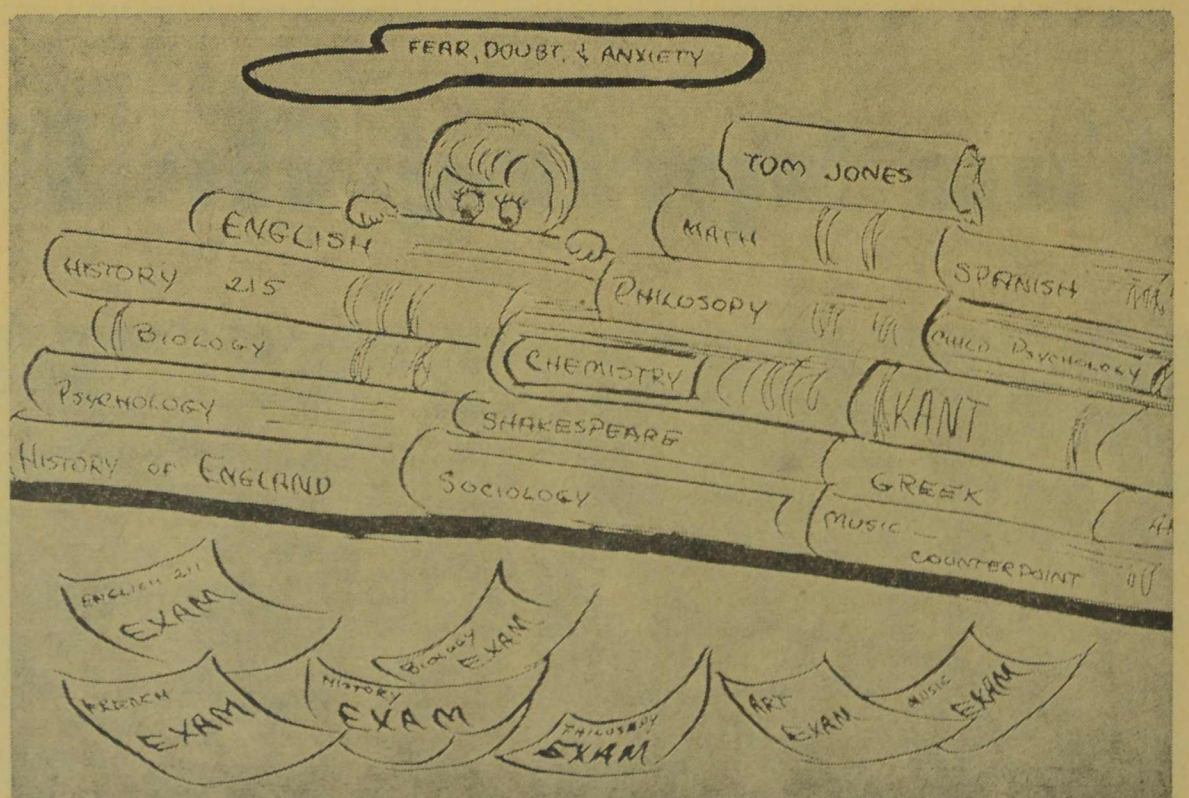 FEAR, DOUBT, & ANXIETY
TOM JONES
ENGLISH
MATH
HISTORY 215
PHILOSOPY
SPANISH
BIOLOGY
CHEMISTRY
CHILD PSYCHOLOGY
PSYCHOLOGY
SHAKESPEARE
KANT
HISTORY OF ENGLAND
SOCIOLOGY
GREEK
MUSIC
COUNTERPOINT
ENGLISH 211
EXAM
BIOLOGY
EXAM
FRENCH
EXAM
HISTORY
EXAM
PHILOSOPY
EXAM
ART
EXAM
MUSIC
EXAM